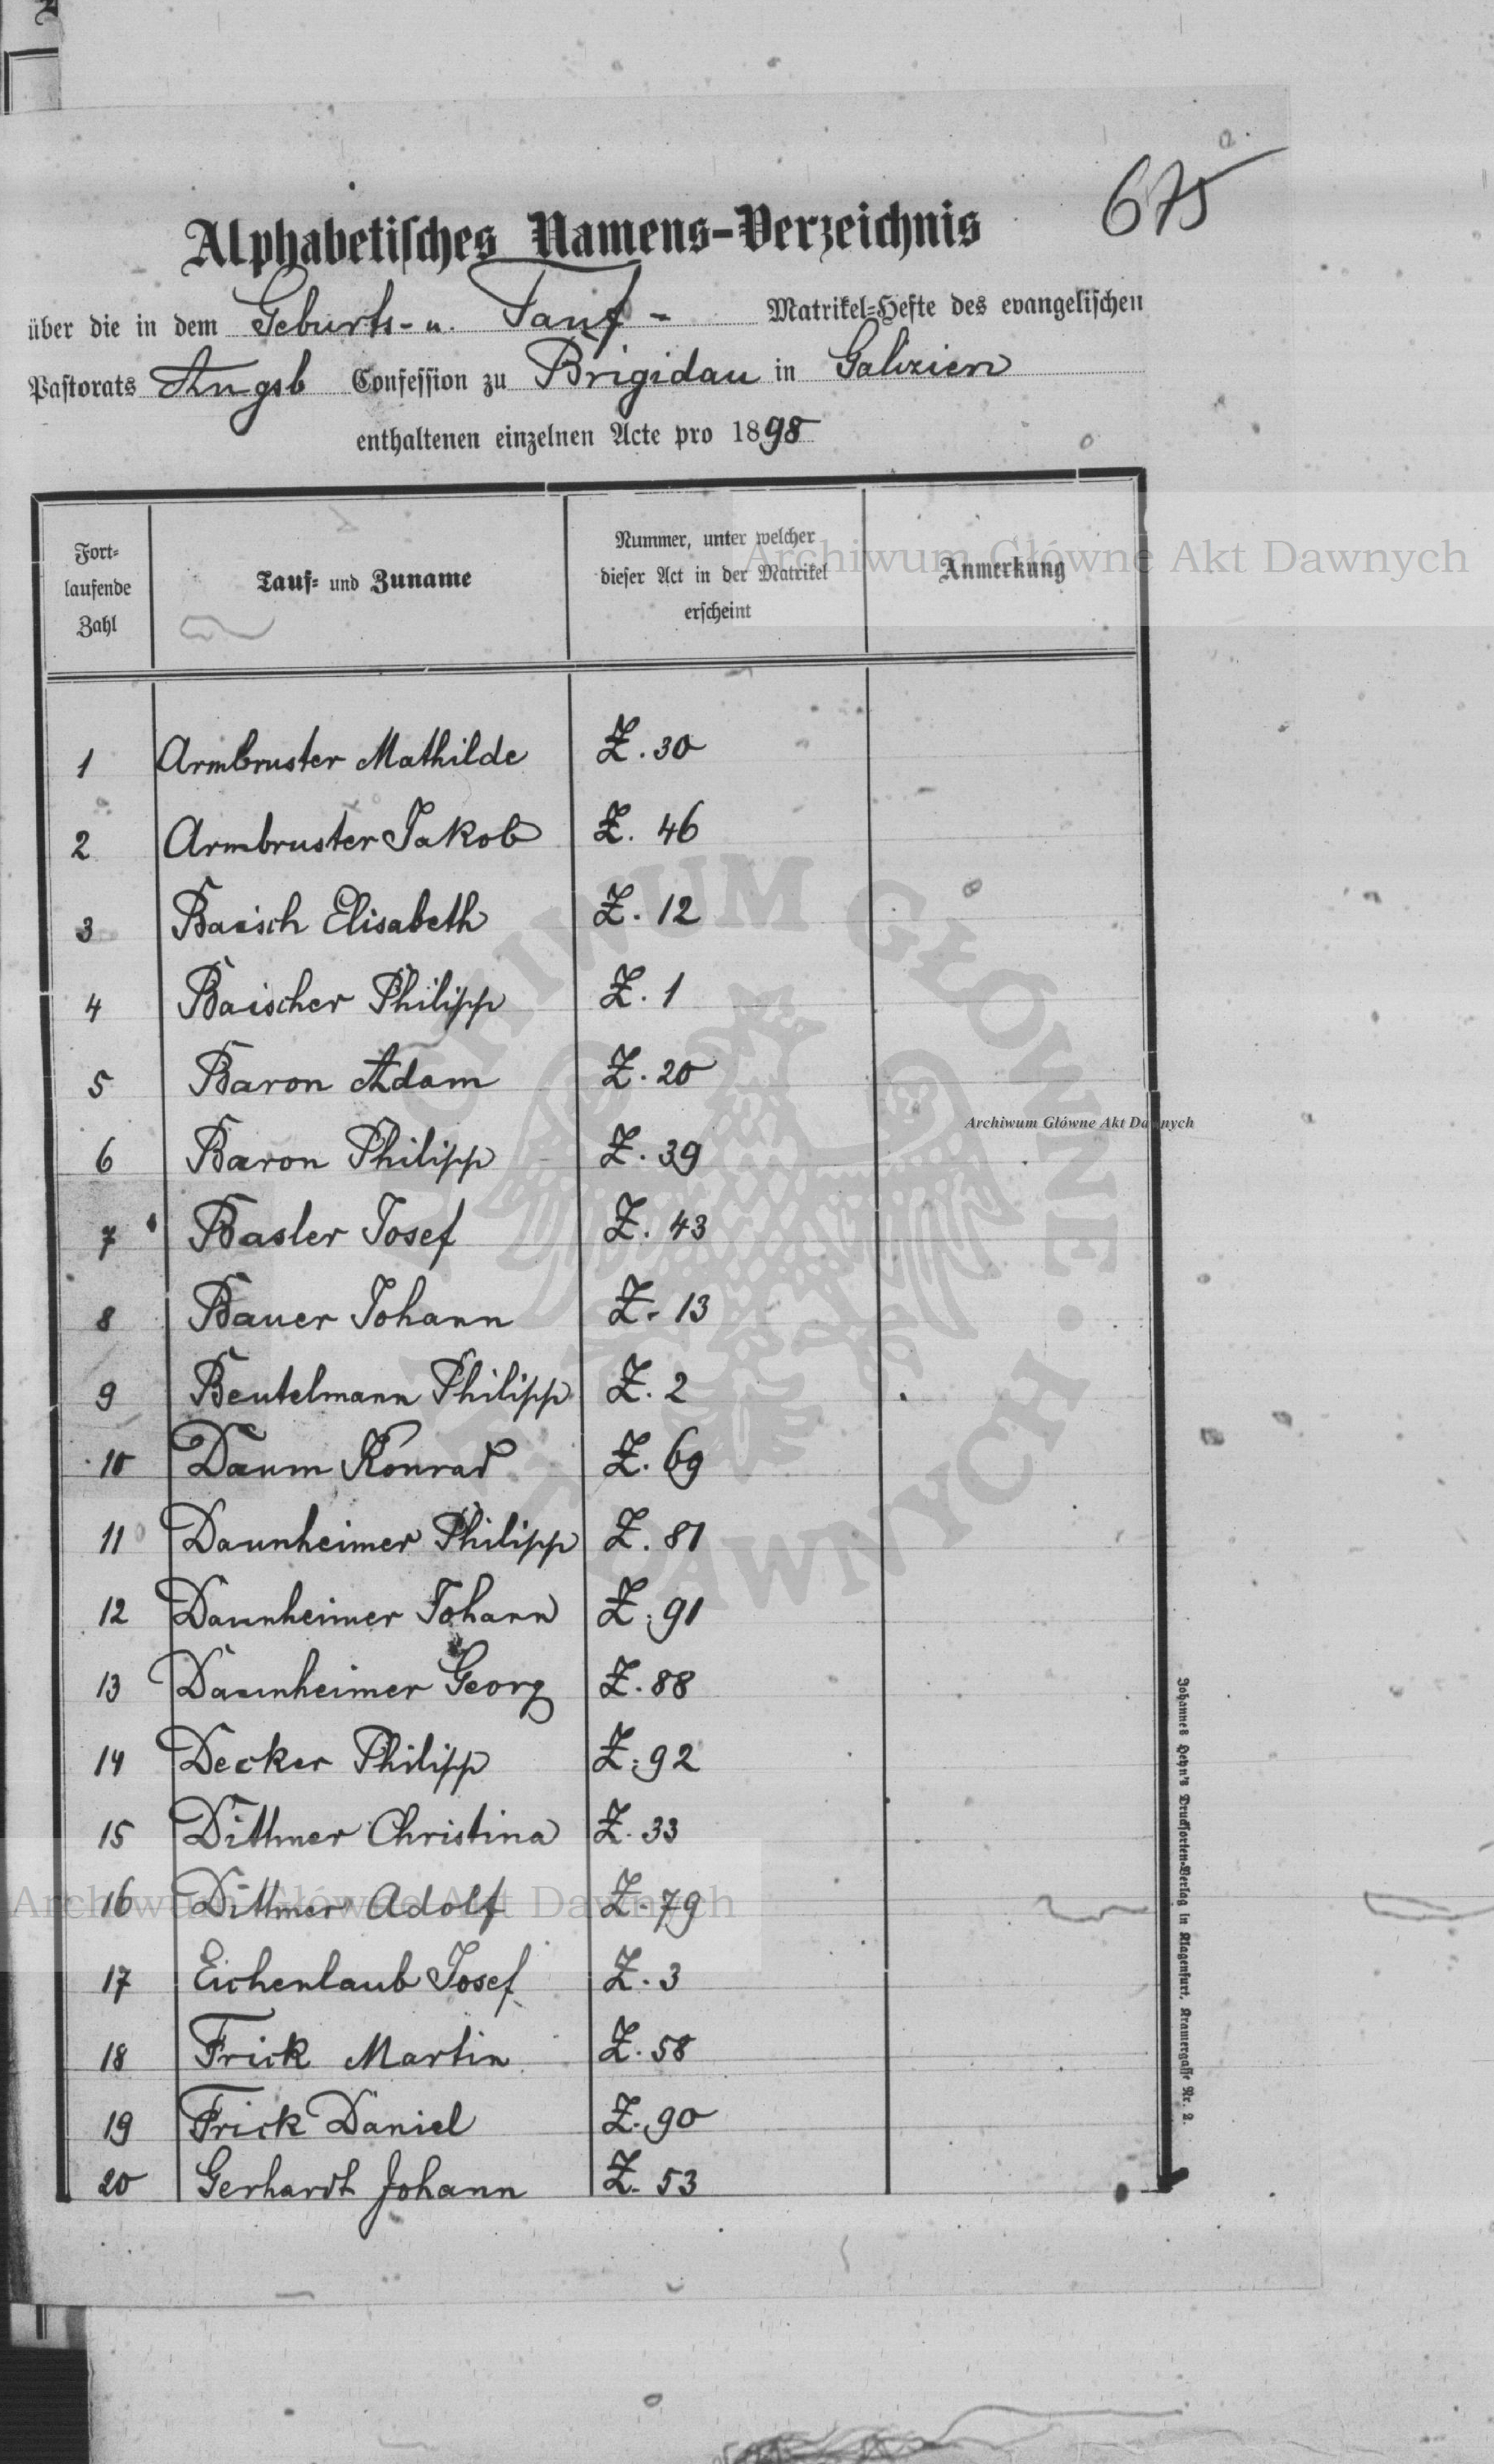 675
Alphabetisches Namens-Verzeichnis
über die in dem Geburts- u. Tauf- Matrikel-Hefte des evangelischen
Pastorats Augsb Confession zu Brigidau in Galizien
enthaltenen einzelnen Acte pro 1898
Fort-
laufende
Zahl
Tauf- und Zuname
Nummer, unter welcher
dieser Act in der Matrikel
erscheint
Anmerkung
1 Armbruster Mathilde Z. 30
2 Armbruster Jakob Z. 46
3 Baisch Elisabeth Z. 12
4 Baischer Philipp Z. 1
5 Baron Adam Z. 20
6 Baron Philipp Z. 39
7 Basler Josef Z. 43
8 Bauer Johann Z. 13
9 Beutelmann Philipp Z. 2
10 Daum Konrad Z. 69
11 Daunheimer Philipp Z. 81
12 Daunheimer Johann Z. 91
13 Daunheimer Georg Z. 88
14 Decker Philipp Z. 92
15 Dittmer Christina Z. 33
16 Dittmer Adolf Z. 79
17 Eichenlaub Josef Z. 3
18 Frick Martin Z. 58
19 Frick Daniel Z. 90
20 Gerhardt Johann Z. 53
Johannes Heyn's Drucksorten-Verlag in Klagenfurt, Kramergasse Nr. 2.
Archiwum Główne Akt Dawnych
Archiwum Główne Akt Dawnych
Archiwum Główne Akt Dawnych
ARCHIWUM GŁÓWNE · AKT DAWNYCH ·